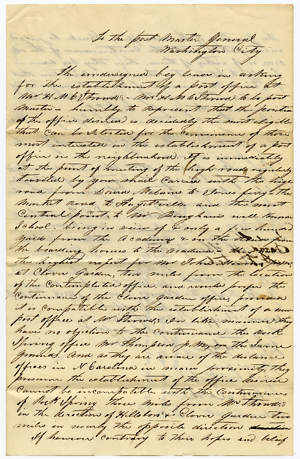 To the post Master General
Washington City
The undersigned beg leave in asking
for the establishment by a post office at
Mr H. M. C. Stroud's Mr H. M. C. Stroud to be post
Master - humbly to represent that the position
of the office desired is decidedly the most eligible
that can be selected for the convenience of those
most interested in the establishment of a post
office in the neighbourhood. It is immediately
at the point of meeting of the high roads regularly
travelled by
road from
Market road to Fayetteville and the most
Central point to Mr Bingham's well known
School. being in view of & only a few hundred
yards from the Academy & on the
the boarding houses & the
the highest
at Clover Garden, two miles from the location
of the Contemplated office and would prefer the
Continuance of the Clover garden office, provided
it is compatible with the establishment of a new
post office at Mr Strouds (for like reasons) they
have no objection to the continuance the Rock
Spring office Mr Thompson p. M. upon the same
ground. And as they are aware of the distance
offices in N Carolina in many proximity, they
presume the establishment of the office desired
Cannot be incompatible with the continuance
of Rock Spring three miles from Mr Strouds
in the direction of Hillsboro & Clover Garden two
miles in nearly the opposite direction
If however contrary to their hopes and belief